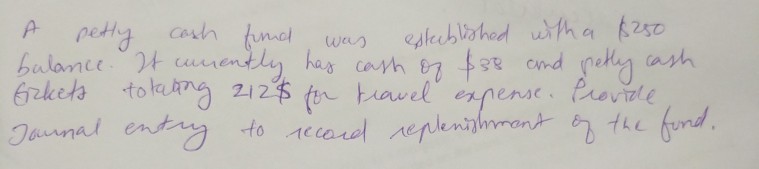 A petty cash fund was established with a $250
balance. It currently has cash of $38 and petty cash
tickets totaling 212$ for travel expense. Provide
Journal entry to record replenishment of the fund.